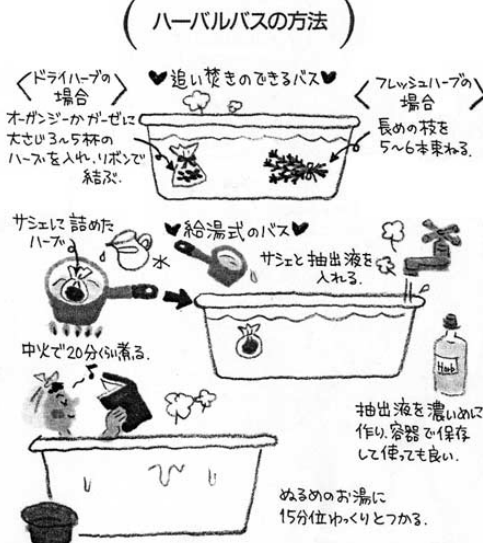 ハーバルバスの方法
♥追い焚きのできるバス♥
〈ドライハーブの
場合〉
オーガンジーかガーゼに
大さじ3〜5杯の
ハーブを入れ、リボンで
結ぶ.
〈フレッシュハーブの
場合〉
長めの枝を
5〜6本束ねる.
♥給湯式のバス♥
サシェに詰めた
ハーブ
水
サシェと抽出液を
入れる.
中火で20分くらい煮る.
Herb
抽出液を濃いめに
作り、容器で保存
して使っても良い.
ぬるめのお湯に
15分位ゆっくりとつかる.